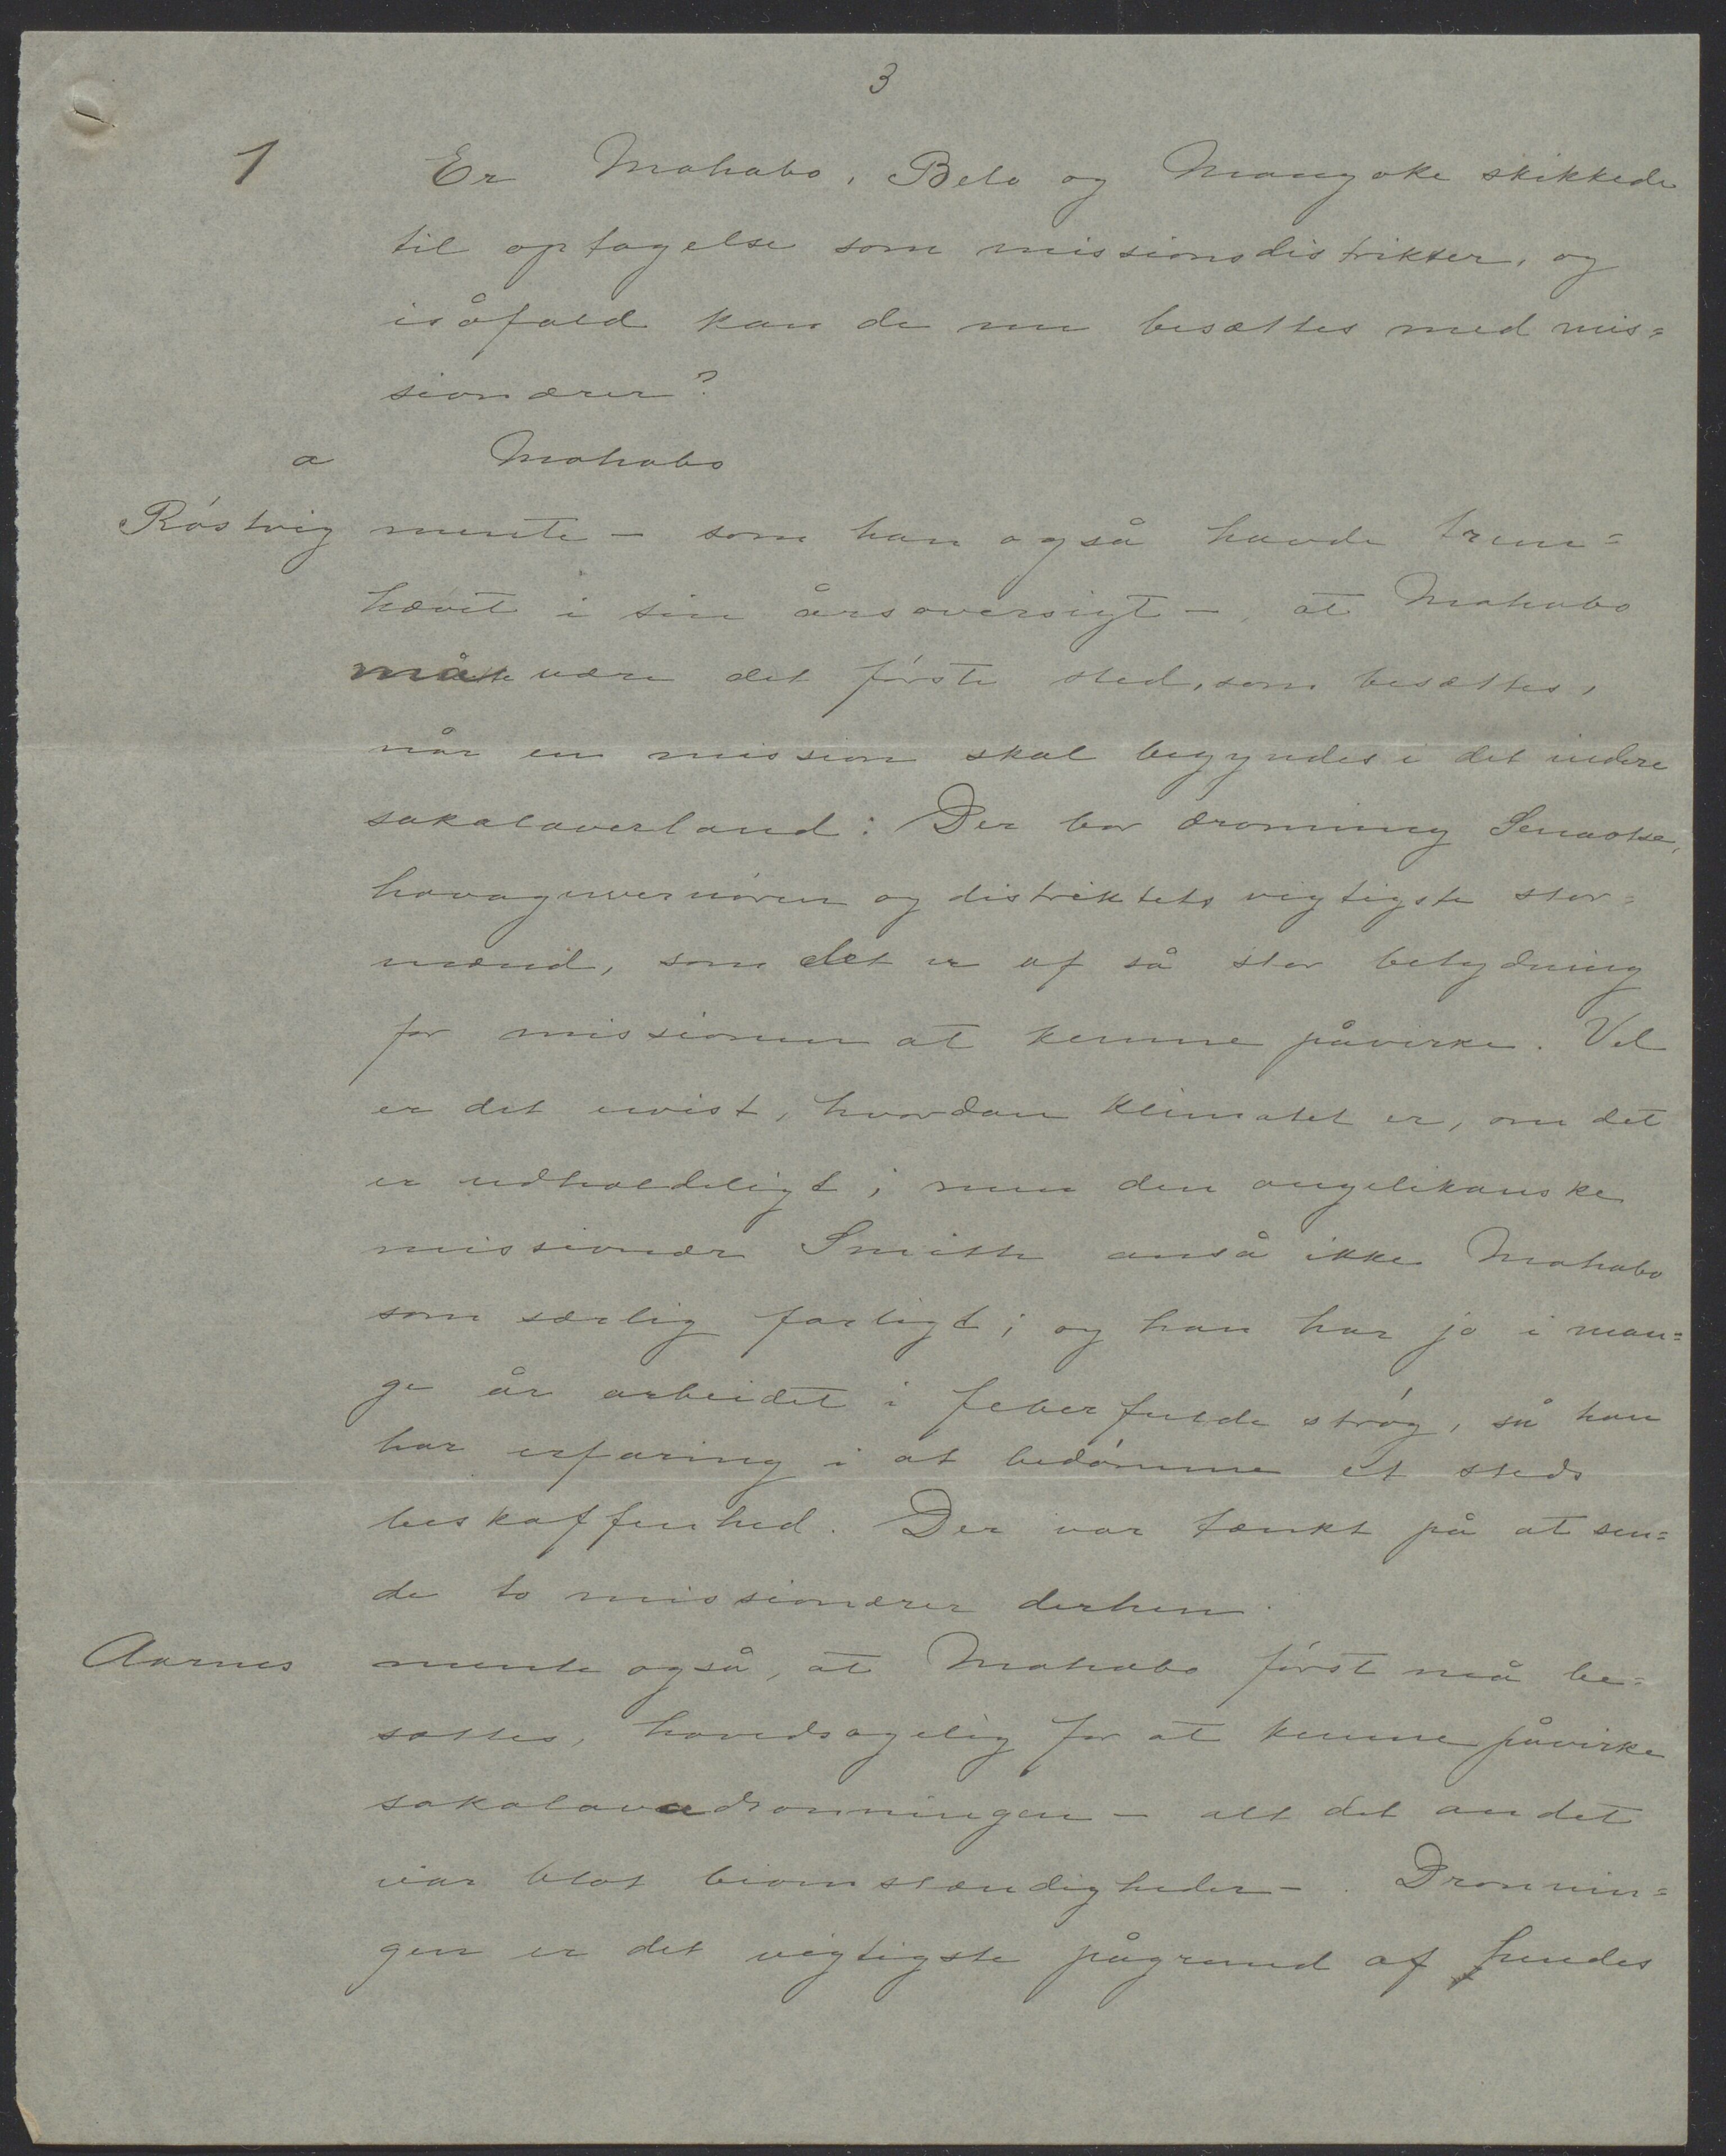 3
1 Er Mahabo, Belo og Mangoke skikkede
til optagelse som missionsdistrikter, og
isåfald kan de nu besættes med mis=
sionærer?
a Mahabo
Röstvig mente – som han også havde frem=
hævet i sin årsoversigt –, at Mahabo
måtte være det første sted, som besættes,
når en mission skal begyndes i det indre
sakalaverland: Der bor dronning
hovaguvernören og distriktets vigtigste stor=
mænd, som det er af så stor betydning
for missionen at kunne påvirke. Vel
er det uvist, hvordan klimatet er, om det
er udholdeligt; men den angelikanske
missionær Smith anså ikke Mahabo
som særlig farligt; og han har jo i man=
ge år arbeidet i feberfulde strög, så han
har erfaring i at bedömme et steds
beskaffenhed. Der var tænkt på at sen=
de to missionærer derhen.
Aarnes mente også, at Mahabo först må be=
sættes, hovedsagelig for at kunne påvirke
sakalavadronningen – alt det andet
var blot biomstændigheder –. Dronnin=
gen er det vigtigste pågrund af hendes